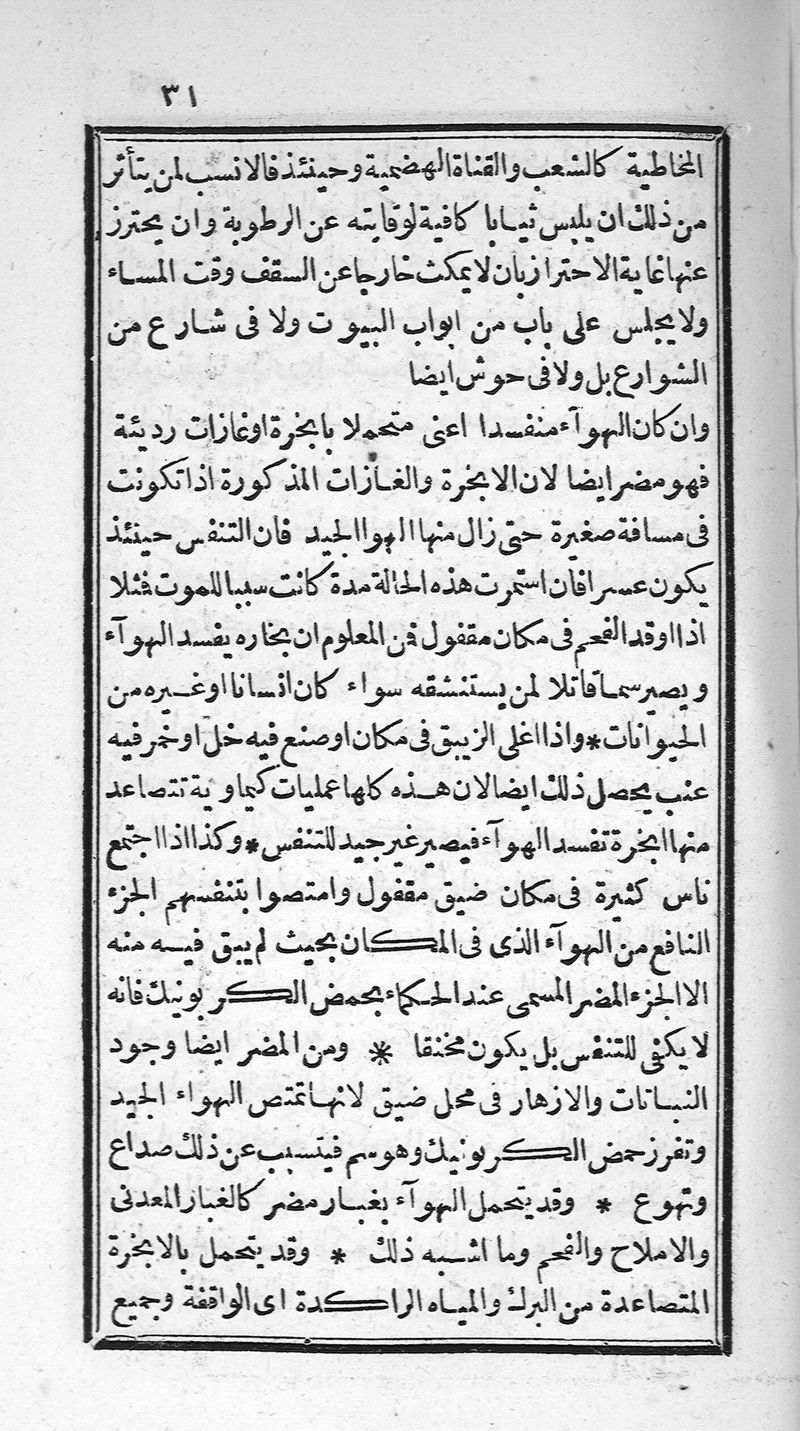 ٣١
المخاطية كالشعب والقناة الهضمية وحينئذ فالانسب لمن يتأثر
من ذلك ان يلبس ثيابا كافية لوقايته عن الرطوبة وان يحترز
عنها غاية الاحتراز بان لا يمكث خارجا عن السقف وقت المساء
ولا يجلس على باب من ابواب البيوت ولا فى شارع من
الشوارع بل ولا فى حوش ايضا
وان كان الهوآء منفسدا اعنى متحملا بابخرة اوغازات رديئة
فهو مضر ايضا لان الابخرة والغازات المذكورة اذا تكونت
فى مسافة صغيرة حتى زال منها الهوا الجيد فان التنفس حينئذ
يكون عسرا فان استمرت هذه الحالة مدة كانت سببا للموت فمثلا
اذا اوقد الفحم فى مكان مقفول فمن المعلوم ان بخاره يفسد الهوآء
ويصير سما قاتلا لمن يستنشقه سواء كان انسانا اوغيره من
الحيوانات * واذا اغلى الزيبق فى مكان اوصنع فيه خل اوخمر فيه
عنب يحصل ذلك ايضا لان هذه كلها عمليات كيماوية تتصاعد
منها ابخرة تفسد الهوآء فيصير غير جيد للتنفس * وكذا اذا اجتمع
ناس كثيرة فى مكان ضيق مقفول وامتصوا بتنفسهم الجزء
النافع من الهوآء الذى فى المكان بحيث لم يبق فيه منه
الا الجزء المضر المسمى عند الحكماء بحمض الكربونيك فانه
لا يكفى للتنفس بل يكون مخنقا * ومن المضر ايضا وجود
النباتات والازهار فى محل ضيق لانها تمتص الهواء الجيد
وتفرز حمض الكربونيك وهو سم فيتسبب عن ذلك صداع
وتهوع * وقد يتحمل الهوآء بغبار مضر كالغبار المعدنى
والاملاح والفحم وما اشبه ذلك * وقد يتحمل بالابخرة
المتصاعدة من البرك والمياه الراكدة اى الواقفة وجميع